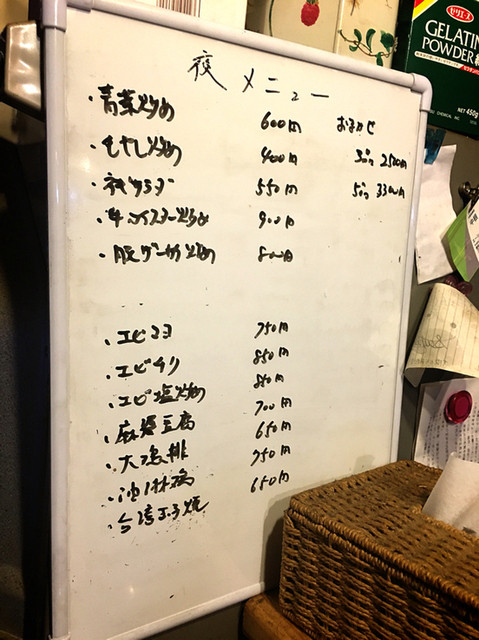 夜メニュー
・青菜炒め 600円 おまかせ
・もやし炒め 400円 3品 2500円
・ネギサラダ 550円 5品 3300円
・牛オイスター炒め 900円
・豚ゲーサイ炒め 800円
・エビマヨ 750円
・エビチリ 850円
・エビ塩炒め 850円
・麻婆豆腐 700円
・大鶏排 650円
・油淋鶏 750円
・台湾玉子焼 650円
ゼリエース
GELATIN
POWDER
NET 450g